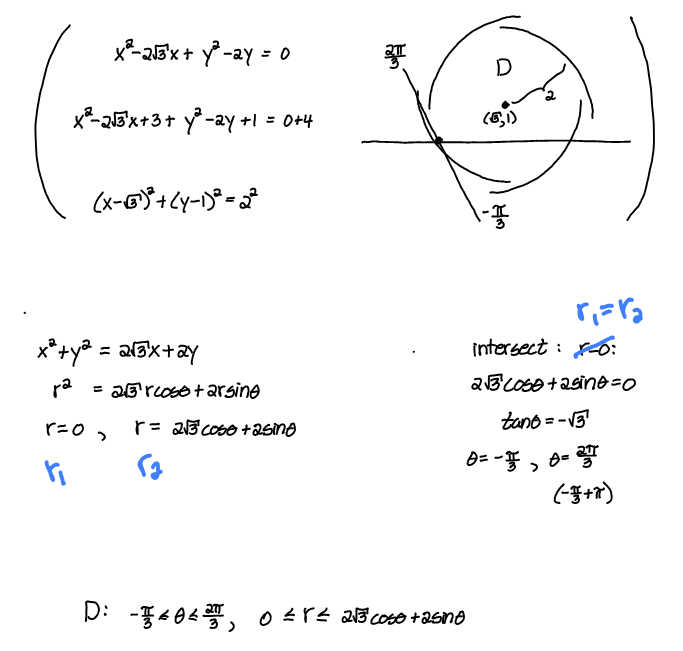 x²-2√3x + y²-2y = 0
x²-2√3x+3+ y²-2y+1 = 0+4
(x-√3)²+(y-1)²=2²
2π/3
D
2
(√3,1)
-π/3
x²+y² = 2√3x+2y
r² = 2√3rcosθ+2rsinθ
r=0 , r= 2√3cosθ+2sinθ
r₁ r₂
r₁=r₂
intersect : r=0:
2√3cosθ+2sinθ=0
tanθ=-√3
θ=-π/3 , θ=2π/3
(-π/3+π)
D: -π/3≤θ≤2π/3, 0≤r≤ 2√3cosθ+2sinθ